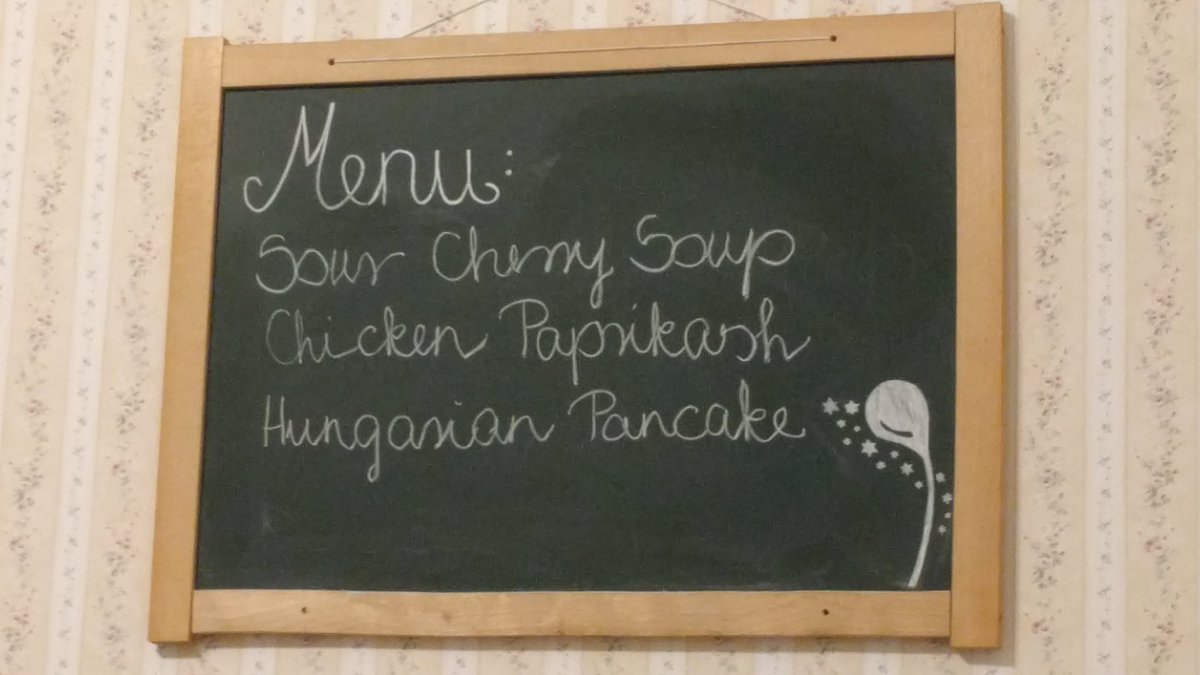 Menu:
Sour Cherry Soup
Chicken Paprikash
Hungarian Pancake